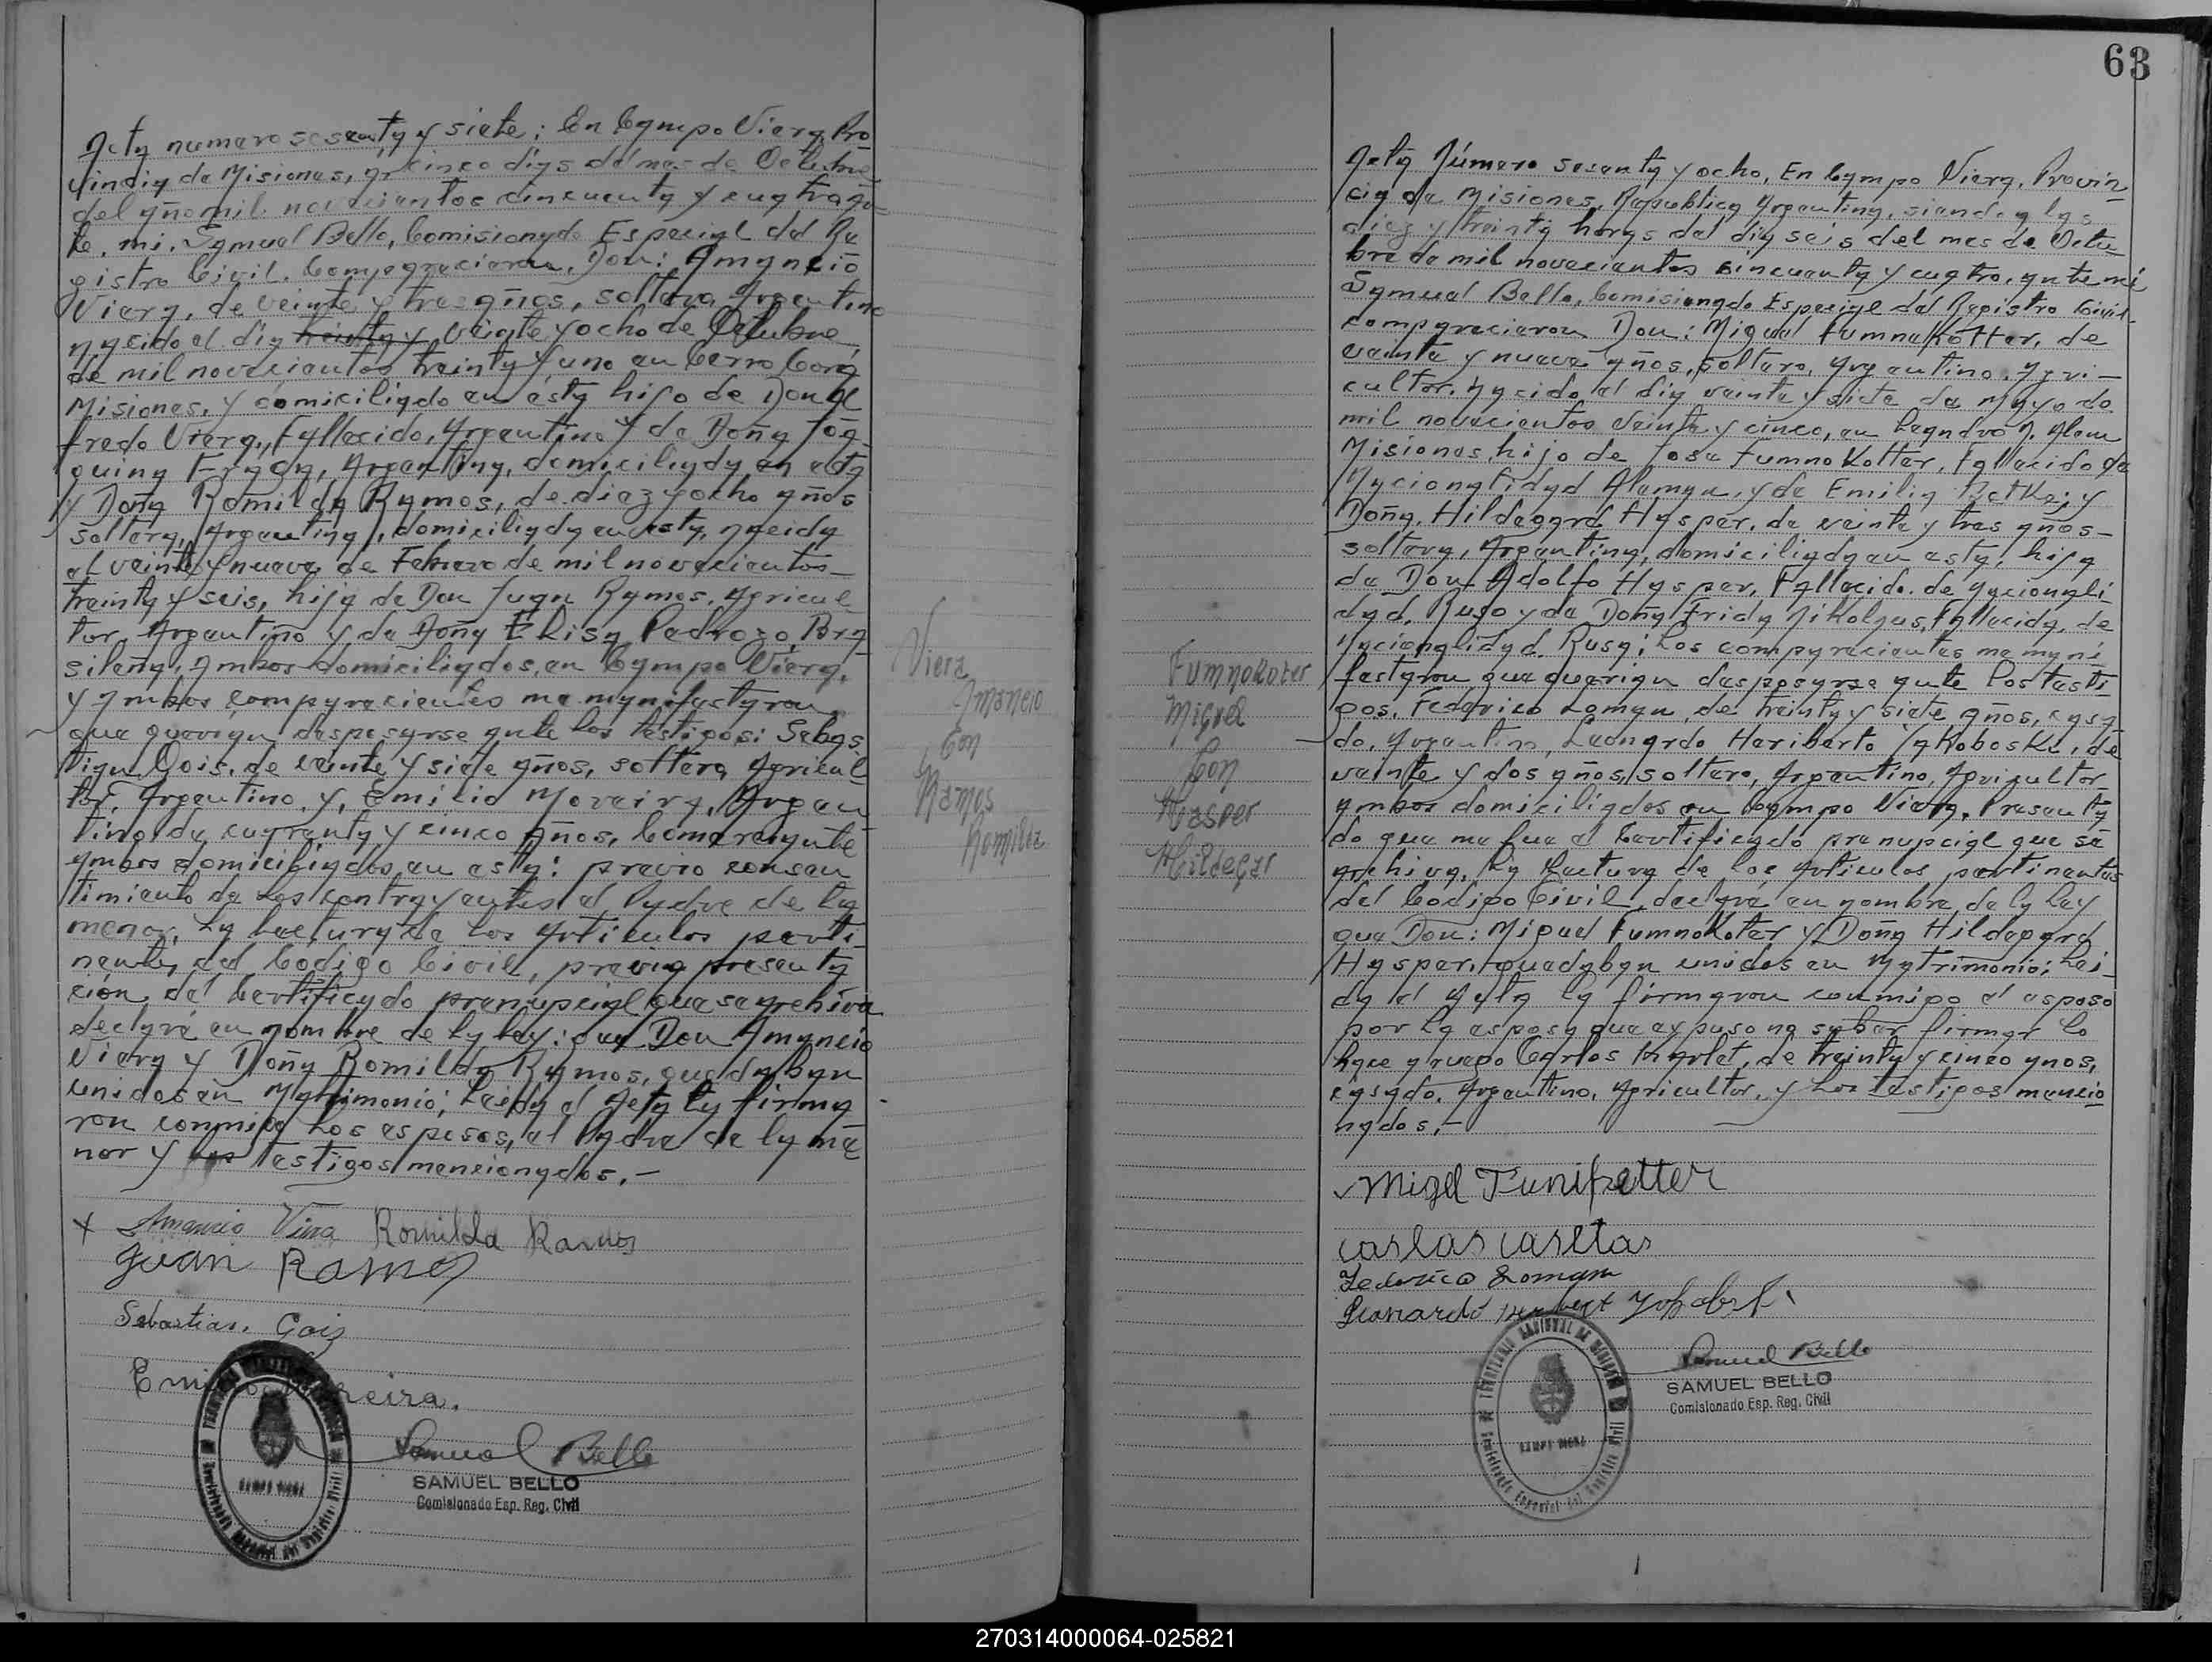 Acta numero sesenta y siete; En Campo Viera, Pro
vincia de Misiones, a cinco días de mes de Octubre
del año mil novecientos cincuenta y cuatro, an
te, mi, Samuel Bello, Comisionado Especial del Re
gistro Civil. Compagraciaron, Don: Amancio
Viera, de veinte y tres años, soltero, Argentino
nacido el dia treinta y veinte y ocho de Octubre
de mil novecientos treinta y uno en Cerro Corá
Misiones, y domiciliado en ésta hijo de Don Al
fredo Viera, Fallecido, Argentino y de Doña Joa
quina Argentina, domiciliada en esta
y Doña Romilda Ramos, de diez y ocho años
soltera, Argentina, domiciliada en esta, nacida
el veinte y nueve de Febrero de mil novecientos
treinta y seis, hija de Don Juan Ramos, Agricul
tor, Argentino y de Doña Elisa Pedrozo, Bra
sileña, ambos domiciliados, en Campo Viera,
y ambos comparecientes me manifestaron
que querian desposarse ante los testigos: Sebas
tian Gois, de veinte y siete años, soltero, Agricul
tor, Argentino, y, Emilio Moreira, Argen
tino, de cuarenta y cinco años, Comerciante
ambos domiciliados en esta: previo consen
timiento de los contrayentes el Padre de la
menor, La lectura de los Articulos perti-
nentes del Codigo Civil, previa presenta
cion del Certificado prenupcial que se archiva
declaré en nombre de la ley: que Don Amancio
Viera y Doña Romilda Ramos, quedaban
unidos en Matrimonio; Leida el Acta la firma
ron conmigo Los esposos, el Padre de la me
nor y los Testigos mencionados.-
Viera
Amancio
Con
Ramos
Romilda
X Amancio Viera Romilda Ramos
Juan Ramos
Sebastian Gois
Emilio Moreira.
Samuel Bello
SAMUEL BELLO
Comisionado Esp. Reg. Civil
63
Acta Número sesenta y ocho, En Campo Viera, Provin
cia de Misiones, Republica Argentina, siendo a las
diez y treinta horas del dia seis del mes de Octu
bre de mil novecientos cincuenta y cuatro, ante mi
Samuel Bello, Comisionado Especial del Registro Civil
comparecieron Don: Miguel Fumnakotter, de
veinte y nueve años, soltero, Argentino, Agri-
cultor, nacido el dia veinte y siete de Mayo de
mil novecientos veinte y cinco, en Leandro N. Alem
Misiones, hijo de Jose Fumnokotter, Fallecido de
Nacionalidad Alemana, y de Emilia y
Doña, Hildegard Hasper, de veinte y tres años-
soltera, Argentina, domiciliada en esta, hija
de Don Adolfo Hasper, Fallecido, de nacionali-
dad, Ruso y de Doña Frida Nikolaus, Fallecida, de
Nacionalidad, Rusa; Los comparecientes me mani
festaron que querian desposarse ante los testi
gos, Federico Loman, de treinta y siete años, casa
do, Argentino, Leonardo Heriberto Jakoboski, de
veinte y dos años, soltero, Argentino, Agricultor
ambos domiciliados en Campo Viera, Presenta
do que me fue el Certificado prenupcial que se
archiva, La Lectura de los Articulos pertinentes
del Codigo Civil, declaré en nombre de la ley
que Don: Miguel Fumnokoter y Doña Hildegard
Hasper, quedaban unidos en Matrimonio; Lei-
da el Acta la firmaron conmigo el esposo
por la esposa que expuso no saber firmar lo
hace a ruego Carlos Karlet, de treinta y cinco años,
casado, Argentino, Agricultor, y los testigos mencio
nados.-
Fumnokoter
Miguel
Con
Hasper
Hildegar
Migel Funifretter
Federico Loman
Samuel Bello
SAMUEL BELLO
Comisionado Esp. Reg. Civil
270314000064-025821